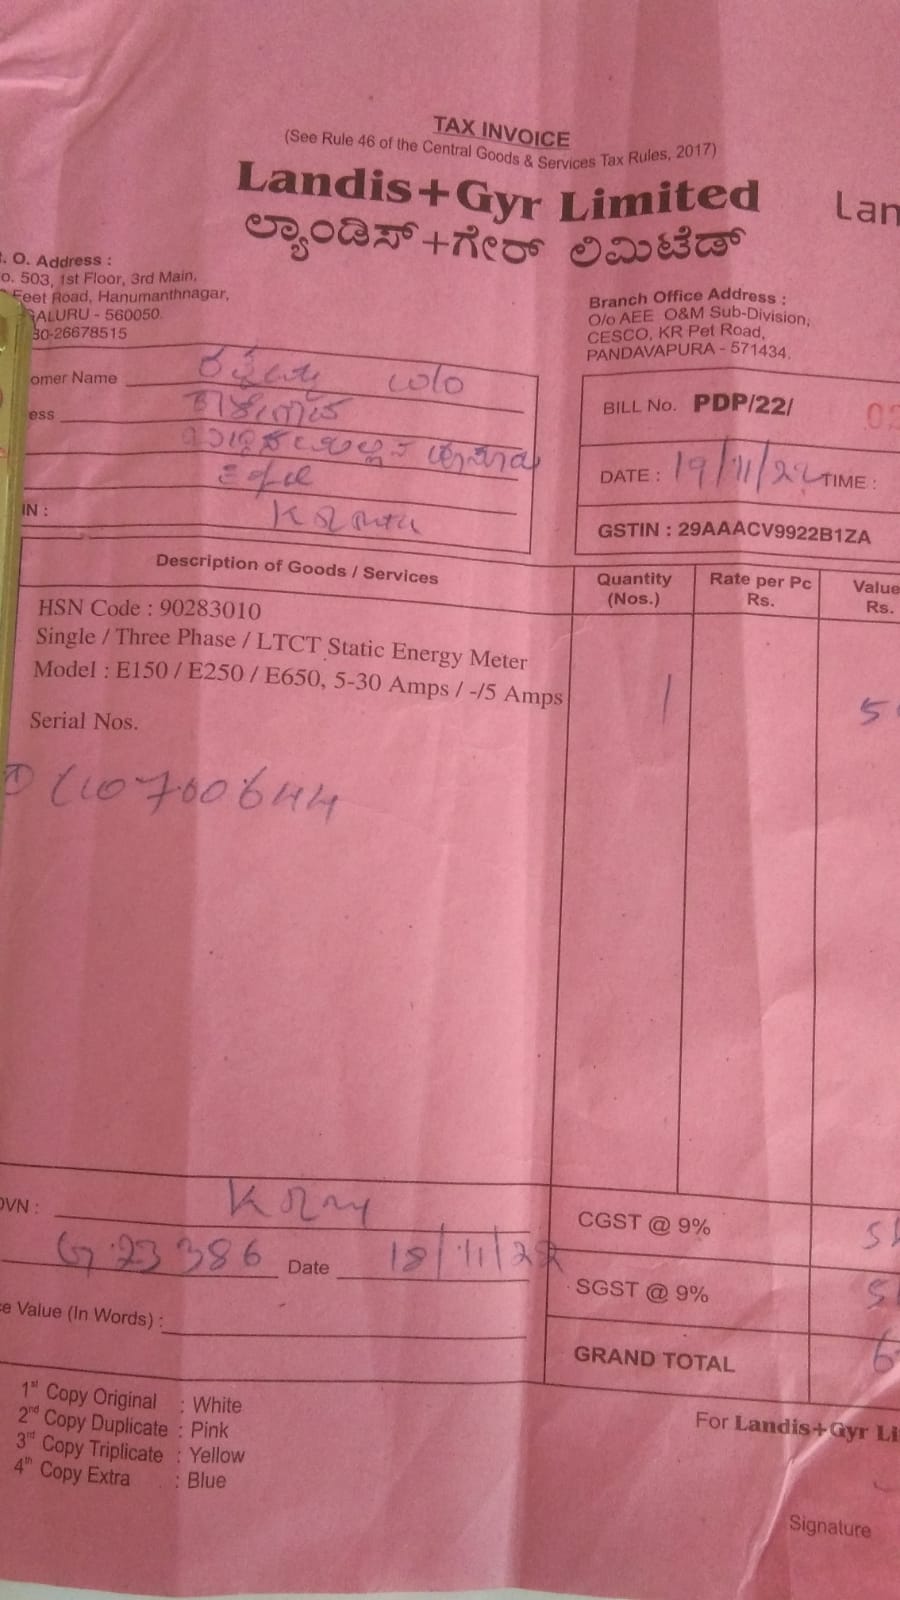 TAX INVOICE
(See Rule 46 of the Central Goods & Services Tax Rules, 2017)
Landis+Gyr Limited
ಲ್ಯಾಂಡಿಸ್+ಗೇರ್ ಲಿಮಿಟೆಡ್
Lan
. O. Address :
o. 503, 1st Floor, 3rd Main,
Feet Road, Hanumanthnagar,
ALURU - 560050.
80-26678515
Branch Office Address :
O/o AEE O&M Sub-Division,
CESCO, KR Pet Road,
PANDAVAPURA - 571434.
omer Name
ess
IN :
BILL No. PDP/22/
DATE : 19/11/22 TIME :
GSTIN : 29AAACV9922B1ZA
Description of Goods / Services
Quantity (Nos.)
Rate per Pc Rs.
Value Rs.
HSN Code : 90283010
Single / Three Phase / LTCT Static Energy Meter
Model : E150 / E250 / E650, 5-30 Amps / -/5 Amps
1
5
Serial Nos.
OVN :
CGST @ 9%
G.23386 Date 18/11/22
SGST @ 9%
e Value (In Words) :
GRAND TOTAL
6
1st Copy Original : White
2nd Copy Duplicate : Pink
3rd Copy Triplicate : Yellow
4th Copy Extra : Blue
For Landis+Gyr Li
Signature